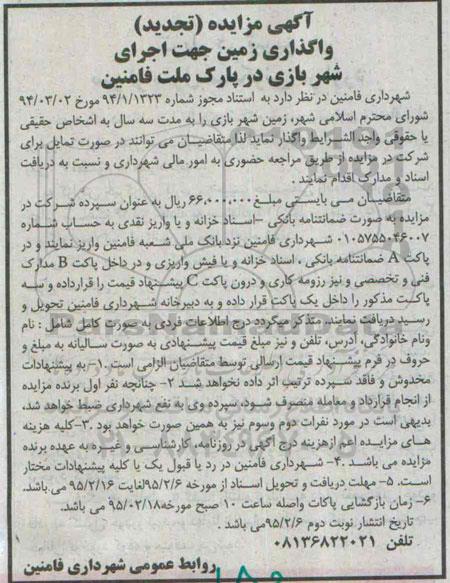 آگهی مزایده (تجدید)
واگذاری زمین جهت اجرای
شهر بازی در پارک ملت فامنین
شهرداری فامنین در نظر دارد به استناد مجوز شماره ۹۴/۱/۱۳۲۳ مورخ ۹۴/۰۳/۰۲
شورای محترم اسلامی شهر، زمین شهر بازی را به مدت سه سال به اشخاص حقیقی
یا حقوقی واجد الشرایط واگذار نماید لذا متقاضیان می توانند در صورت تمایل برای
شرکت در مزایده از طریق مراجعه حضوری به امور مالی شهرداری و نسبت به دریافت
اسناد و مدارک اقدام نمایند .
متقاضیان می بایستی مبلغ ۶۶,۰۰۰,۰۰۰ ریال به عنوان سپرده شرکت در
مزایده به صورت ضمانتنامه بانکی -اسناد خزانه و یا واریز نقدی به حساب شماره
۰۱۰۵۷۵۵۰۴۶۰۰۷ شهرداری فامنین نزد بانک ملی شعبه فامنین واریز نمایند و در
پاکت A ضمانتنامه بانکی ، اسناد خزانه و یا فیش واریزی و در داخل پاکت B مدارک
فنی و تخصصی و نیز رزومه کاری و درون پاکت C پیشنهاد قیمت را قرارداده و سه
پاکت مذکور را داخل یک پاکت قرار داده و به دبیرخانه شهرداری فامنین تحویل و
رسید دریافت نمایند. متذکر میگردد درج اطلاعات فردی به صورت کامل شامل : نام
ونام خانوادگی، آدرس، تلفن و نیز مبلغ قیمت پیشنهادی به صورت سالیانه به مبلغ و
حروف در فرم پیشنهاد قیمت ارسالی توسط متقاضیان الزامی است. ۱- به پیشنهادات
مخدوش و فاقد سپرده ترتیب اثر داده نخواهد شد ۲- چنانچه نفر اول برنده مزایده
از انجام قرارداد و معامله منصرف شود، سپرده وی به نفع شهرداری ضبط خواهد شد،
بدیهی است در مورد نفرات دوم وسوم نیز به همین صورت خواهد بود .۳-کلیه هزینه
های مزایده اعم ازهزینه درج آگهی در روزنامه، کارشناسی و غیره به عهده برنده
مزایده می باشد .۴- شهرداری فامنین در رد یا قبول یک یا کلیه پیشنهادات مختار
است. ۵- مهلت دریافت و تحویل اسناد از مورخه ۹۵/۲/۶لغایت ۹۵/۲/۱۶ می باشد.
۶- زمان بازگشایی پاکات واصله ساعت ۱۰ صبح مورخه۹۵/۰۲/۱۸ می باشد.
تاریخ انتشار نوبت دوم ۹۵/۲/۶می باشد .
تلفن ۰۸۱۳۶۸۲۲۰۲۱
روابط عمومی شهرداری فامنین